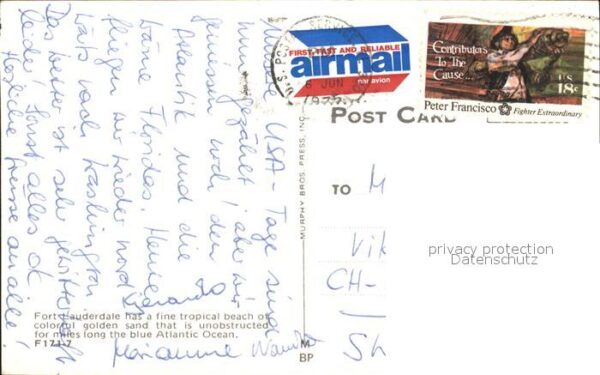 Unsere USA-Tage sind
nun gezählt, aber wir
geniessen noch den
Atlantik und die
Wärme Floridas. Heute
fliegen wir wieder nord-
wärts nach Washington.
Das Wetter ist sehr gewitterhaft
leider. Sonst alles ok
Herzliche Grüsse an alle!
Gerardo
Marianne
Fort Lauderdale has a fine tropical beach of
colorful golden sand that is unobstructed
for miles long the blue Atlantic Ocean.
F171-7
MURPHY BROS. PRESS, INC.
M
BP
FIRST, FAST AND RELIABLE
airmail
par avion
U.S. POSTAL SERVICE
6 JUN
1975
Contributors
To The
Cause...
U.S.
18c
Peter Francisco Fighter Extraordinary
POST CARD
TO
M
Vik
CH-
Sh
privacy protection
Datenschutz